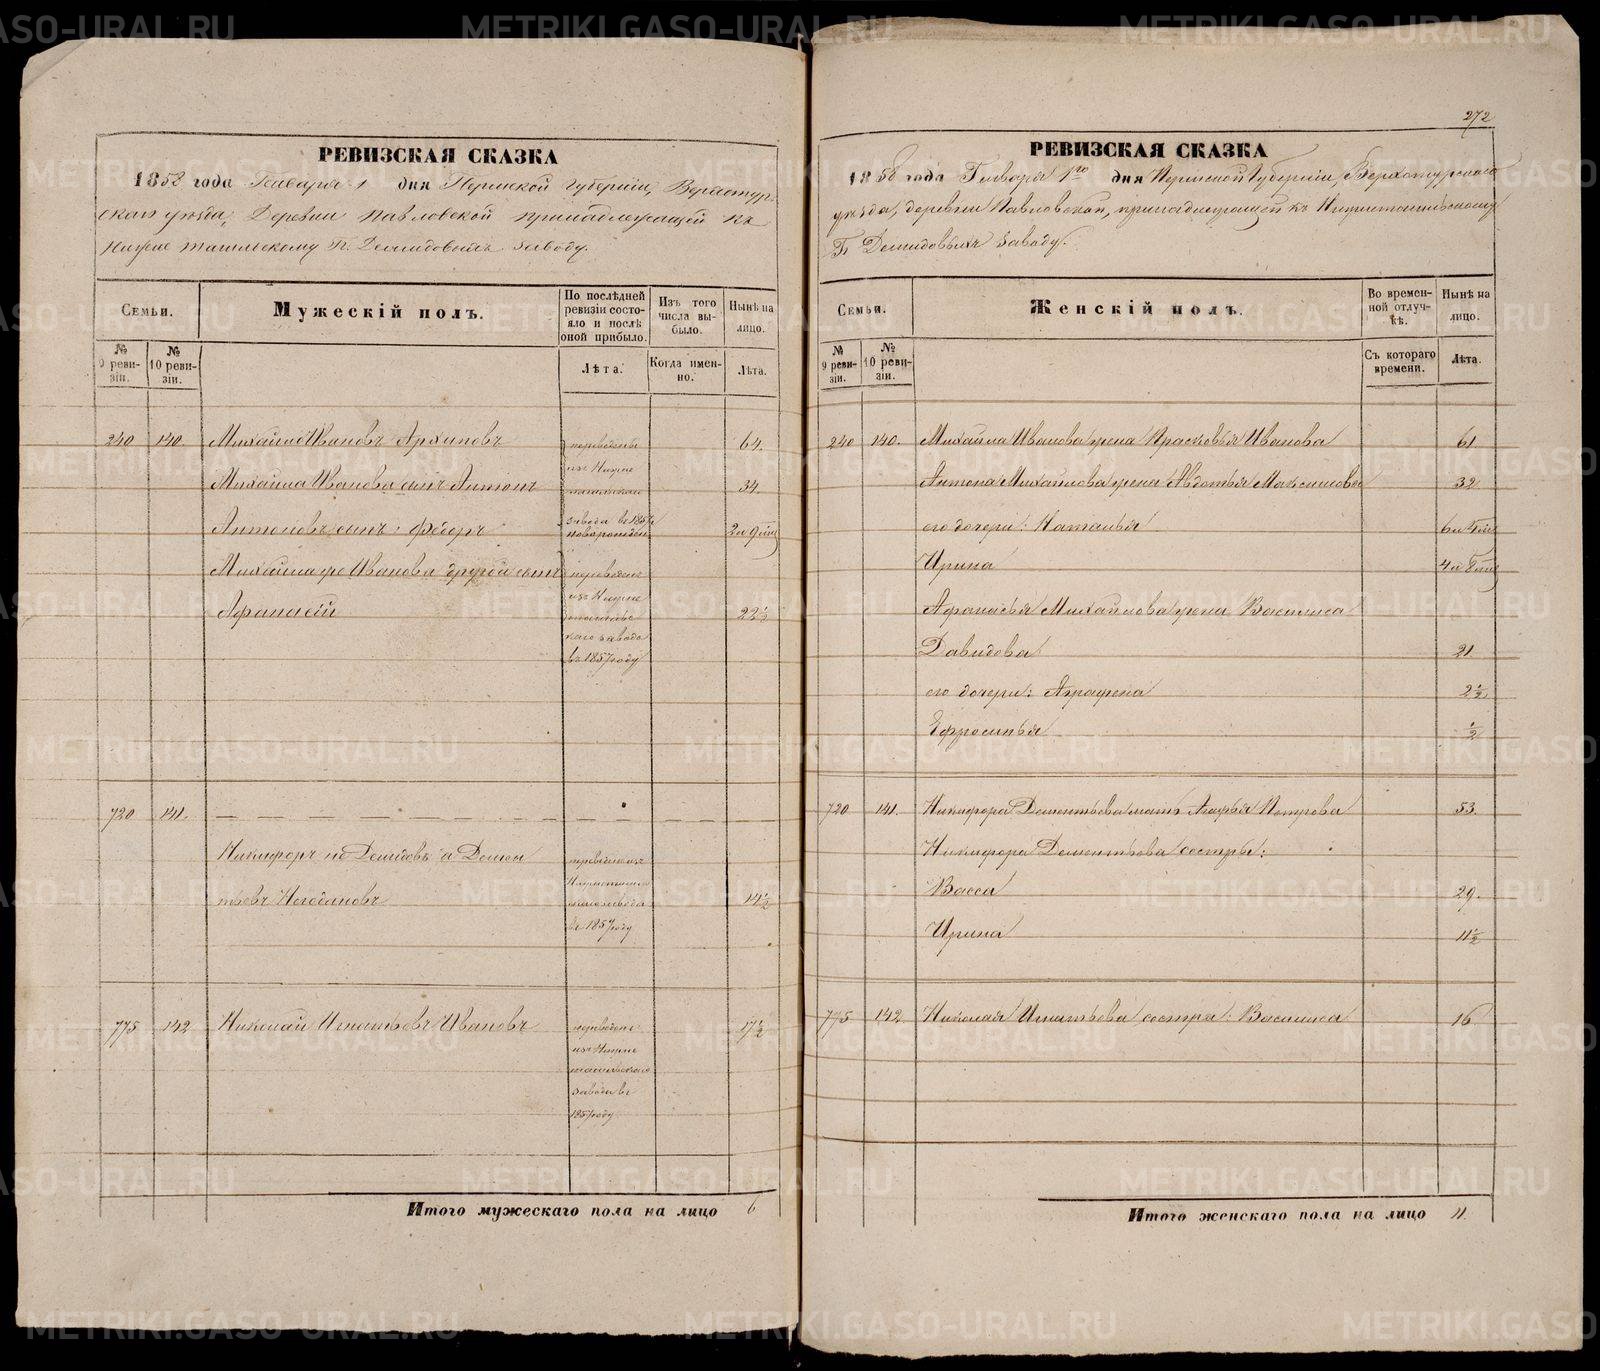 РЕВИЗСКАЯ СКАЗКА
1858 года Генваря 1 дня Пермской Губернiи, Верхотур-
скаго уѣзда, Деревни Павловской принадлежащей къ
Нижне тагильскому Гг. Демидовыхъ заводу.
Семьи.
Мужескiй полъ.
По послѣдней ревизiи состо-
яло и послѣ оной прибыло.
Изъ того числа вы-
было.
Нынѣ на лицо.
№ 9 реви-
зiи.
№ 10 реви-
зiи.
Лѣта.
Когда имен-
но.
Лѣта.
240 140. Михайло Ивановъ Архиповъ 64.
переведены
изъ Нижне
Михайла Иванова сынъ Антонъ 34.
завода въ 1857
Антоновъ сынъ: Федоръ новорожден 2 и 9 мѣц
Михайла же Иванова другой сынъ
Афанасiй 22½
переведенъ
изъ Нижне
тагильс
каго завода
въ 1857 году
720 141.
Никифоръ не Демидовъ а Демен
тьевъ Негодановъ 14½
въ 1857 году
775 142 Николай Игнатьевъ Ивановъ 17½
переведенъ
изъ Нижне
тагильскаго
завода въ
1857 году
Итого мужескаго пола на лицо 6
272
РЕВИЗСКАЯ СКАЗКА
1858 года Генваря 1го дня Пермской Губернiи, Верхотурскаго
уѣзда, деревни Павловской, принадлежащей къ Нижнетагильскому
Гг. Демидовыхъ заводу.
Семьи.
Женскiй полъ.
Во времен-
ной отлуч-
кѣ.
Нынѣ на лицо.
№ 9 реви-
зiи.
№ 10 реви-
зiи.
Съ котораго времени.
Лѣта.
240 140. Михайла Иванова жена Прасковья Иванова 61
Антона Михайлова жена Авдотья Максимова 32
его дочери: Наталья
Ирина
Афанасья Михайлова жена Василиса
Давидова 21
его дочери: Аграфена 2½
Ефросинья ½
720 141. Никифора Дементьева мать Агафья Петрова 53.
Никифора Дементьева сестры:
Васса 29.
Ирина 11½
775 142 Николая Игнатьева сестра: Василиса 16
Итого женскаго пола на лицо 11.
METRIKI.GASO-URAL.RU